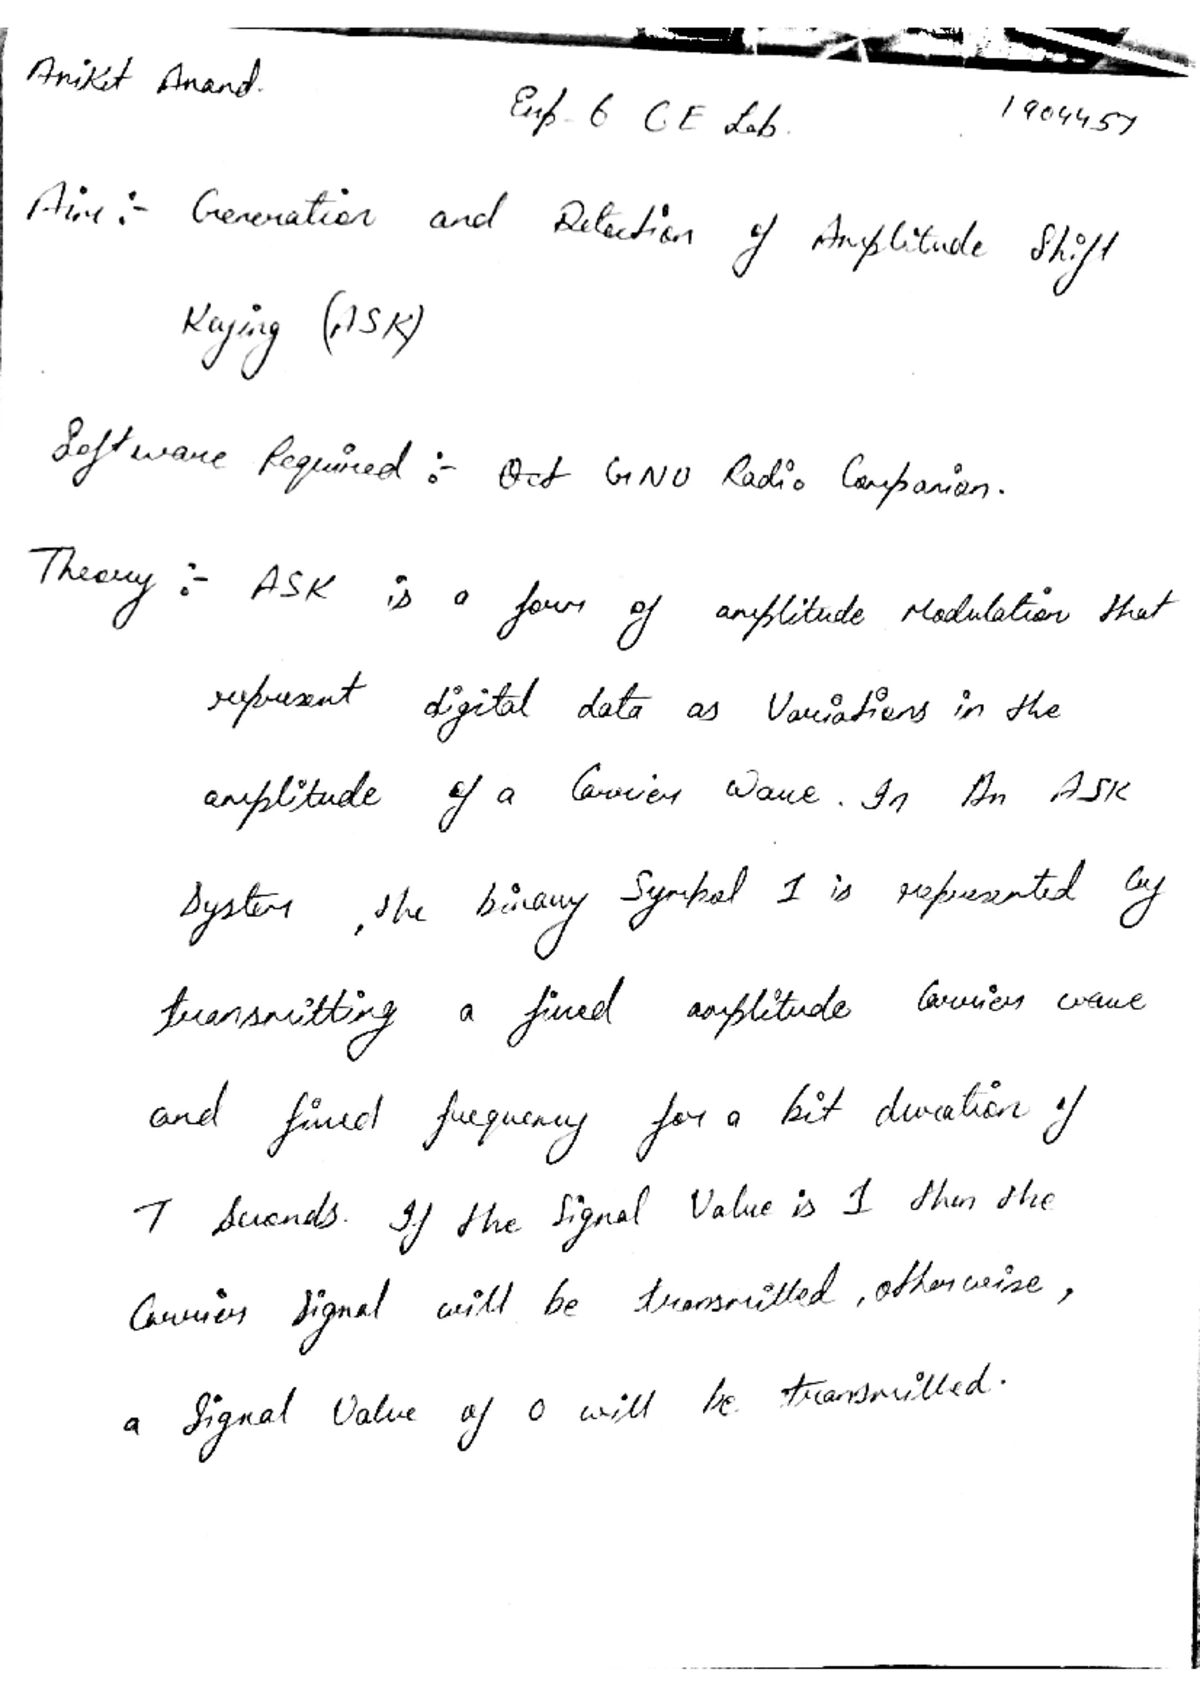 Aniket Anand.
Exp-6 CE Lab.
1904457
Aim :- Generation and Detection of Amplitude Shift
Keying (ASK)
Software Required :- GNU Radio Companion.
Theory :- ASK is a form of amplitude modulation that
represent digital data as Variations in the
amplitude of a Carrier Wave. In An ASK
System, the binary Symbol 1 is represented by
transmitting a fixed amplitude Carrier wave
and fixed frequency for a bit duration of
T Seconds. If the Signal Value is 1 then the
Carrier Signal will be transmitted, otherwise,
a Signal Value of 0 will be transmitted.